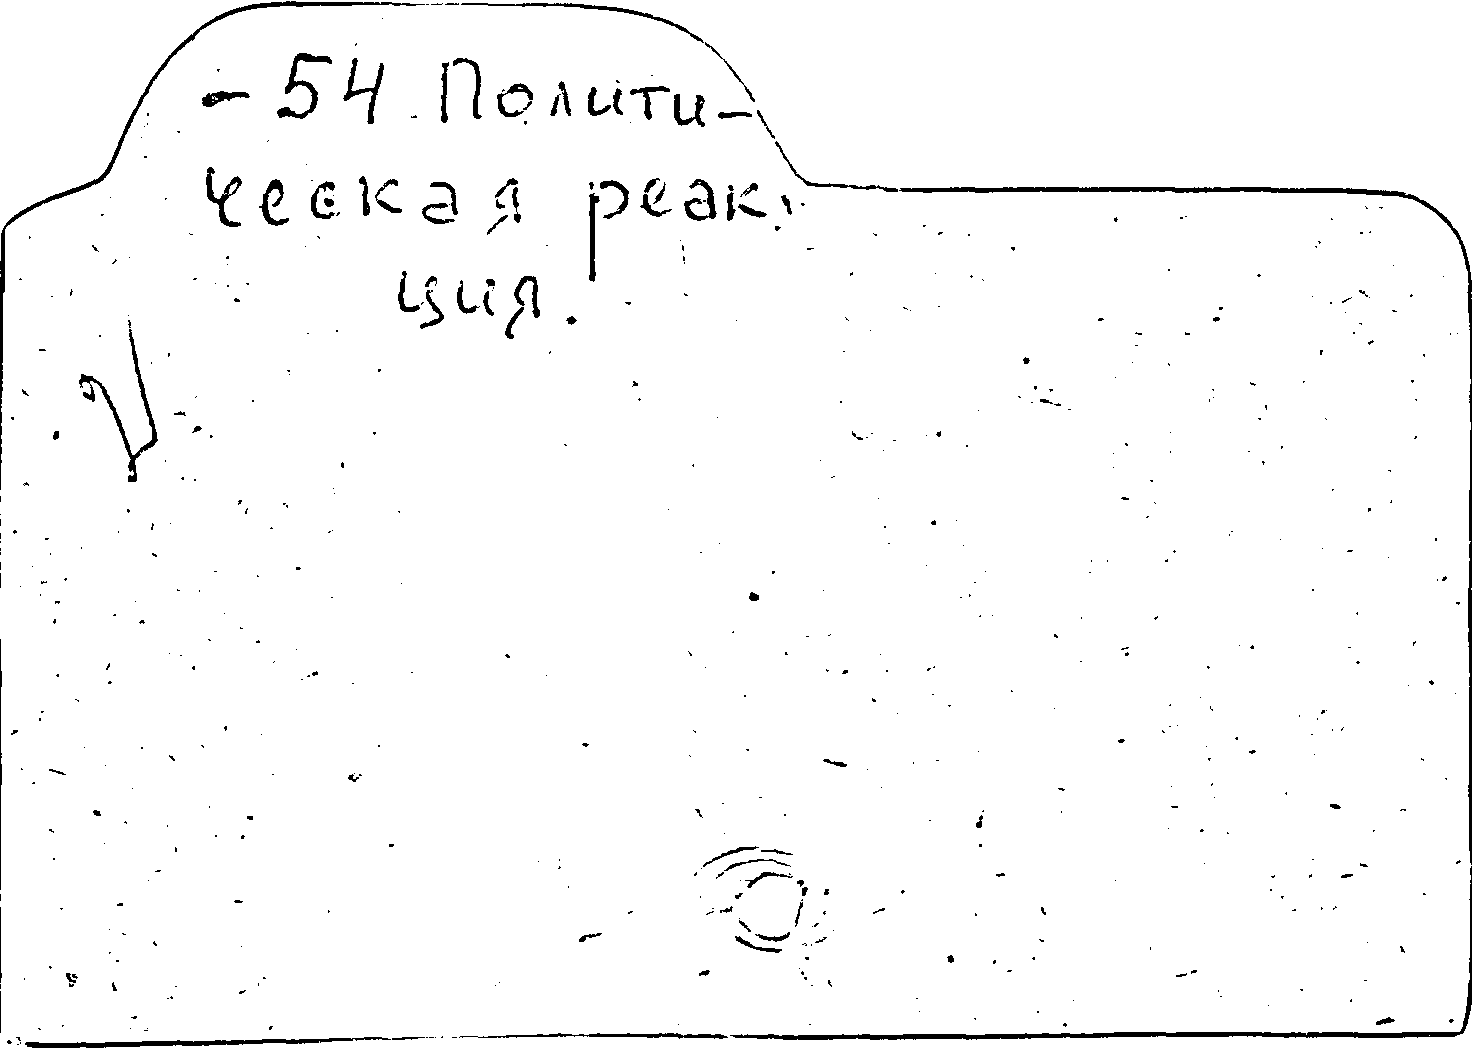 - 54. Полити-
ческая реак-
ция.